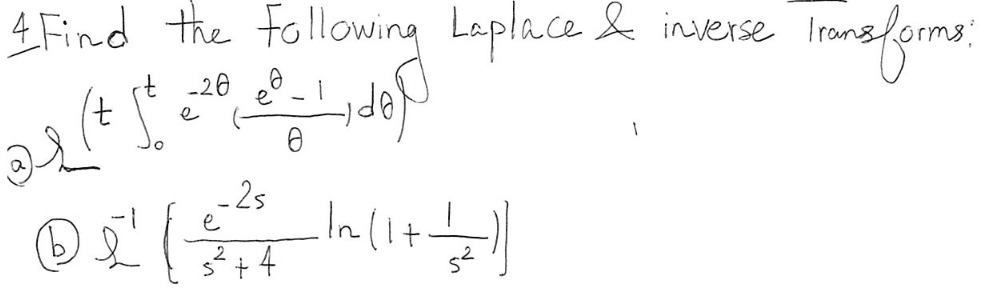 4 Find the following Laplace & inverse Transforms:
ⓐ ℒ(t ∫₀ᵗ e^{-2θ} (\frac{e^θ - 1}{θ}) dθ)
ⓑ ℒ⁻¹ [\frac{e^{-2s}}{s² + 4} ln(1 + \frac{1}{s²})]